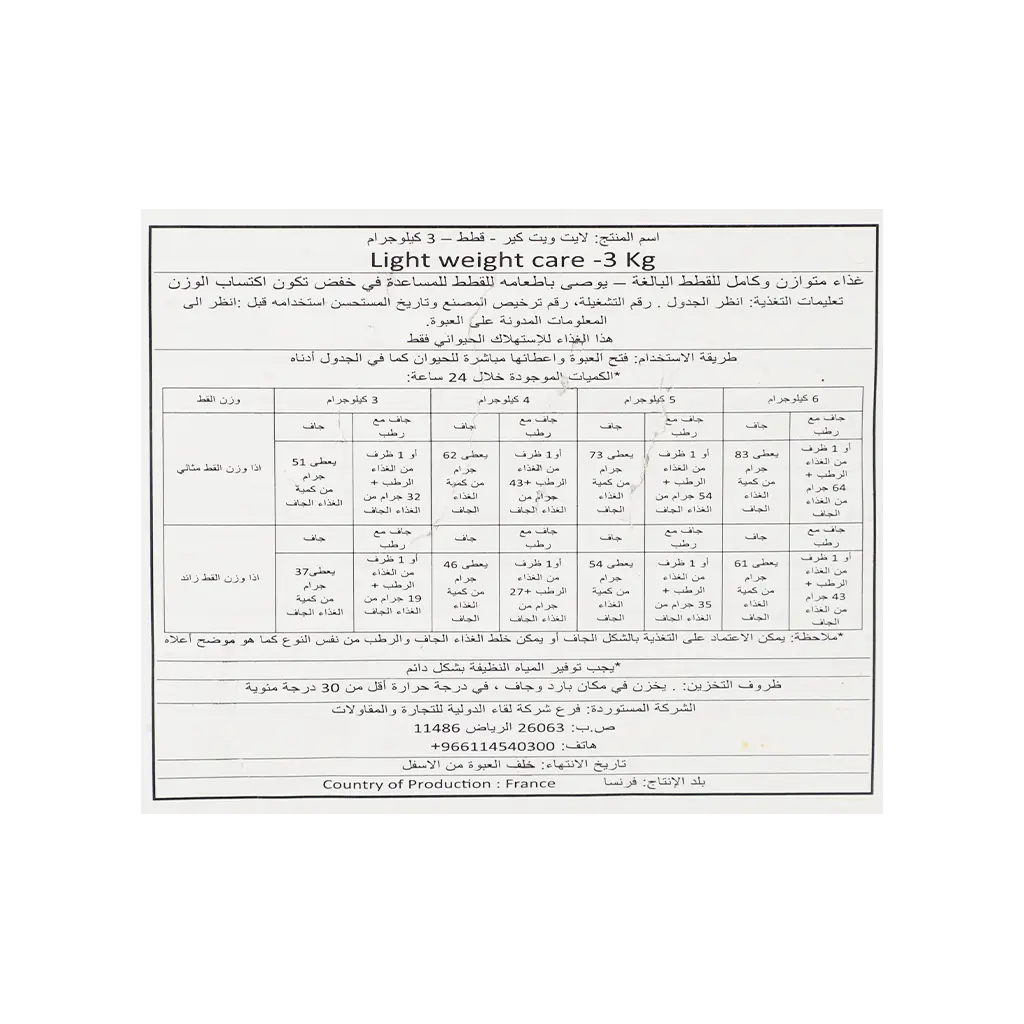 اسم المنتج: لايت ويت كير - قطط – 3 كيلوجرام
Light weight care -3 Kg
غذاء متوازن وكامل للقطط البالغة – يوصى باطعامه للقطط للمساعدة في خفض تكون اكتساب الوزن
تعليمات التغذية: انظر الجدول . رقم التشغيلة، رقم ترخيص المصنع وتاريخ المستحسن استخدامه قبل :انظر الى
المعلومات المدونة على العبوة.
هذا الغذاء للإستهلاك الحيواني فقط
طريقة الاستخدام: فتح العبوة واعطائها مباشرة للحيوان كما في الجدول أدناه
*الكميات الموجودة خلال 24 ساعة:
وزن القط 3 كيلوجرام 4 كيلوجرام 5 كيلوجرام 6 كيلوجرام
اذا وزن القط مثالي
جاف
جاف مع
رطب
جاف
جاف مع
رطب
جاف
جاف مع
رطب
جاف
جاف مع
رطب
يعطى 51
جرام
من كمية
الغذاء الجاف
أو 1 ظرف
من الغذاء
الرطب +
32 جرام من
الغذاء الجاف
يعطى 62
جرام
من كمية
الغذاء
الجاف
أو1 ظرف
من الغذاء
الرطب +43
جرام من
الغذاء الجاف
يعطى 73
جرام
من كمية
الغذاء
الجاف
أو 1 ظرف
من الغذاء
الرطب +
54 جرام من
الغذاء الجاف
يعطى 83
جرام
من كمية
الغذاء
الجاف
أو 1 ظرف
من الغذاء
الرطب +
64 جرام
من الغذاء
الجاف
اذا وزن القط زائد
جاف
جاف مع
رطب
جاف
جاف مع
رطب
جاف
جاف مع
رطب
جاف
جاف مع
رطب
يعطى37
جرام
من كمية
الغذاء الجاف
أو 1 ظرف
من الغذاء
الرطب +
19 جرام من
الغذاء الجاف
يعطى 46
جرام
من كمية
الغذاء
الجاف
أو1 ظرف
من الغذاء
الرطب +27
جرام من
الغذاء الجاف
يعطى 54
جرام
من كمية
الغذاء
الجاف
أو 1 ظرف
من الغذاء
الرطب +
35 جرام من
الغذاء الجاف
يعطى 61
جرام
من كمية
الغذاء
الجاف
أو 1 ظرف
من الغذاء
الرطب +
43 جرام
من الغذاء
الجاف
*ملاحظة: يمكن الاعتماد على التغذية بالشكل الجاف أو يمكن خلط الغذاء الجاف والرطب من نفس النوع كما هو موضح أعلاه
*يجب توفير المياه النظيفة بشكل دائم
ظروف التخزين: . يخزن في مكان بارد وجاف ، في درجة حرارة أقل من 30 درجة مئوية
الشركة المستوردة: فرع شركة لقاء الدولية للتجارة والمقاولات
ص.ب: 26063 الرياض 11486
هاتف: 966114540300+
تاريخ الانتهاء: خلف العبوة من الاسفل
بلد الإنتاج: فرنسا Country of Production : France